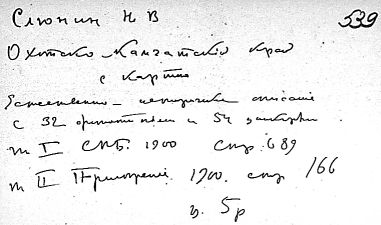 Слюнин Н В 539
Охотско Камчатский край
с картой
Естественно-историческ описание
с 32 фототипиями и 54 цинкограф
т I СПБ. 1900 стр. 689
т II Приложение 1900. стр 166
ц. 5 р